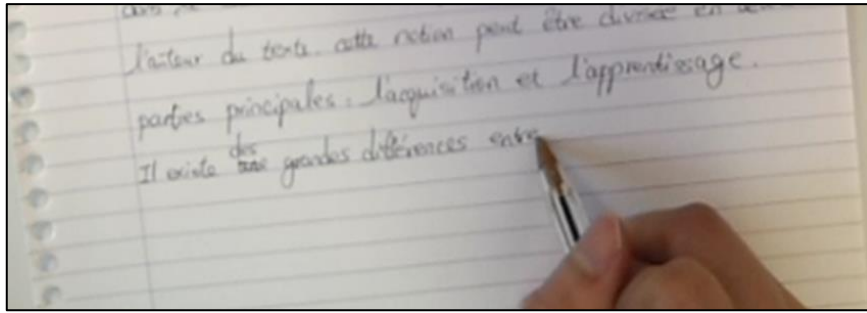 l'auteur du texte. cette notion peut être divisée en
parties principales : l'acquisition et l'apprentissage.
des
Il existe grandes différences entre